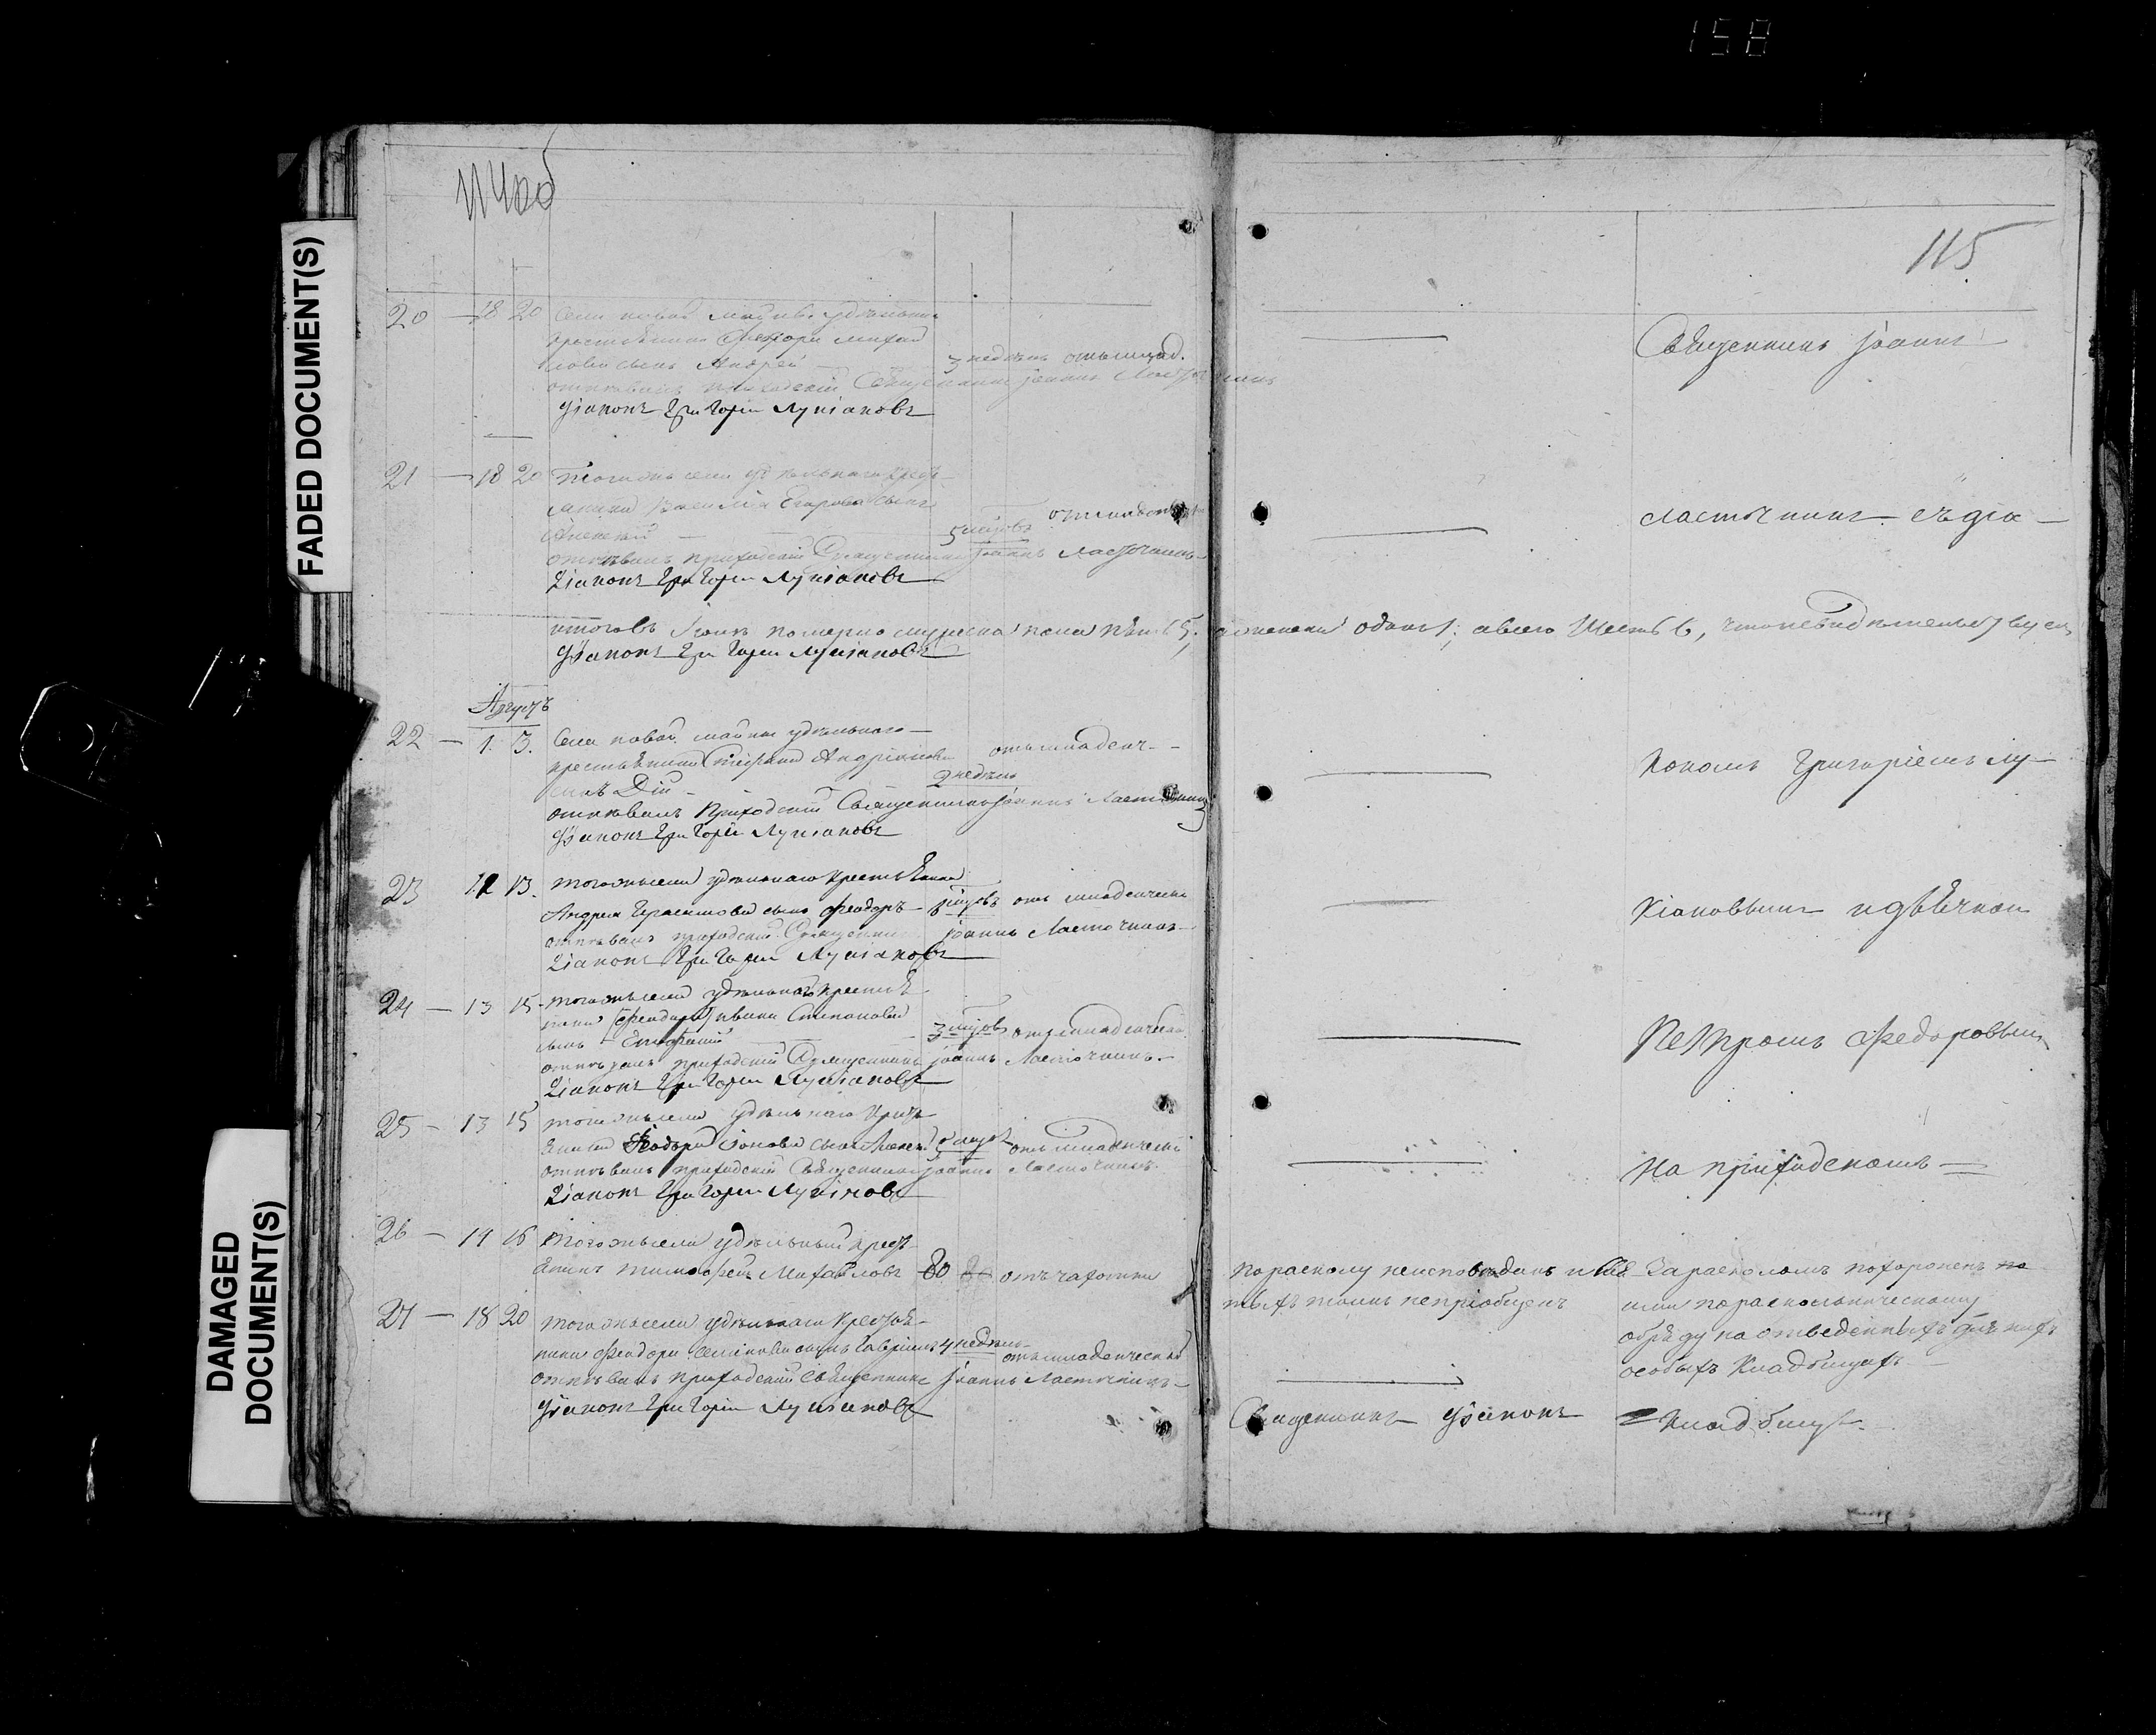 158
115
FADED DOCUMENT(S)
DAMAGED
DOCUMENT(S)
20 — 18 20 Села новой майны удельнаго
крестьянина Феодора Михай
лова сынъ Андрей — 3 недель отъ млад.
отпевалъ приходский Священникъ Iоаннъ Ласточкинъ
Дiаконъ Григорiй Лукiановъ
— Священникъ Iоаннъ
21 — 18 20 Того же села удельнаго крест—
янина Василiя Егорова сынъ
Алексей — 5 месяцовъ отъ младенческ
отпевалъ приходский Священникъ Iоаннъ Ласточкинъ
Дiаконъ Григорiй Лукiановъ
— Ласточкинъ съ дiа—
итого въ Iюле померло мужеска пола пять 5, а женска одна 1; а всего Шесть 6, что и свидетельствуемъ
Дiаконъ Григорiй Лукiановъ
Августъ
22 — 1. 3. Села новой майны удельнаго—
крестьянина Стефана Андрiянова отъ младенч—
сынъ Дiй — 2 недель
отпевалъ Приходский Священникъ Iоаннъ Ласточкинъ
Дiаконъ Григорiй Лукiановъ
— кономъ Григорiемъ Лу—
23 12 13. того же села удельнаго крестьянина
Андрея Герасимова сынъ Феодоръ — месяцовъ отъ младенческ
отпевалъ приходский Священникъ Iоаннъ Ласточкинъ
Дiаконъ Григорiй Лукiановъ
— кiановымъ и дьячком
24 — 13 15 того же села удельнаго крестьЯ
нина Ивана Степанова
сынъ — 3 месяцов отъ младенческ
отпевалъ приходский Священникъ Iоаннъ Ласточкинъ
Дiаконъ Григорiй Лукiановъ
— Петромъ Федоровым
25 — 13 15 того же села удельнаго крест
янина Феодора сынъ 5 месяцов отъ младенческ
отпевалъ приходский Священникъ Iоаннъ Ласточкинъ
Дiаконъ Григорiй Лукiановъ
— На приходскомъ —
26 — 14 16 Того же села удельный крест
янинъ Тимофей Михайловъ 80 отъ чахотки
по расколу не исповеданъ и Свя
тыхъ таинъ не прiобщенъ
За расколомъ похороненъ
ими по раскольническому
обряду на отведенныхъ для нихъ
особыхъ кладбищахъ —
27 — 18 20 того же села удельнаго крестьЯ—
нина Феодора Семенова сынъ Гаврiилъ 4 недель отъ младенческой
отпевалъ приходский Священникъ Iоаннъ Ласточкинъ —
Дiаконъ Григорiй Лукiановъ
Священникъ Дiаконъ — кладбище.